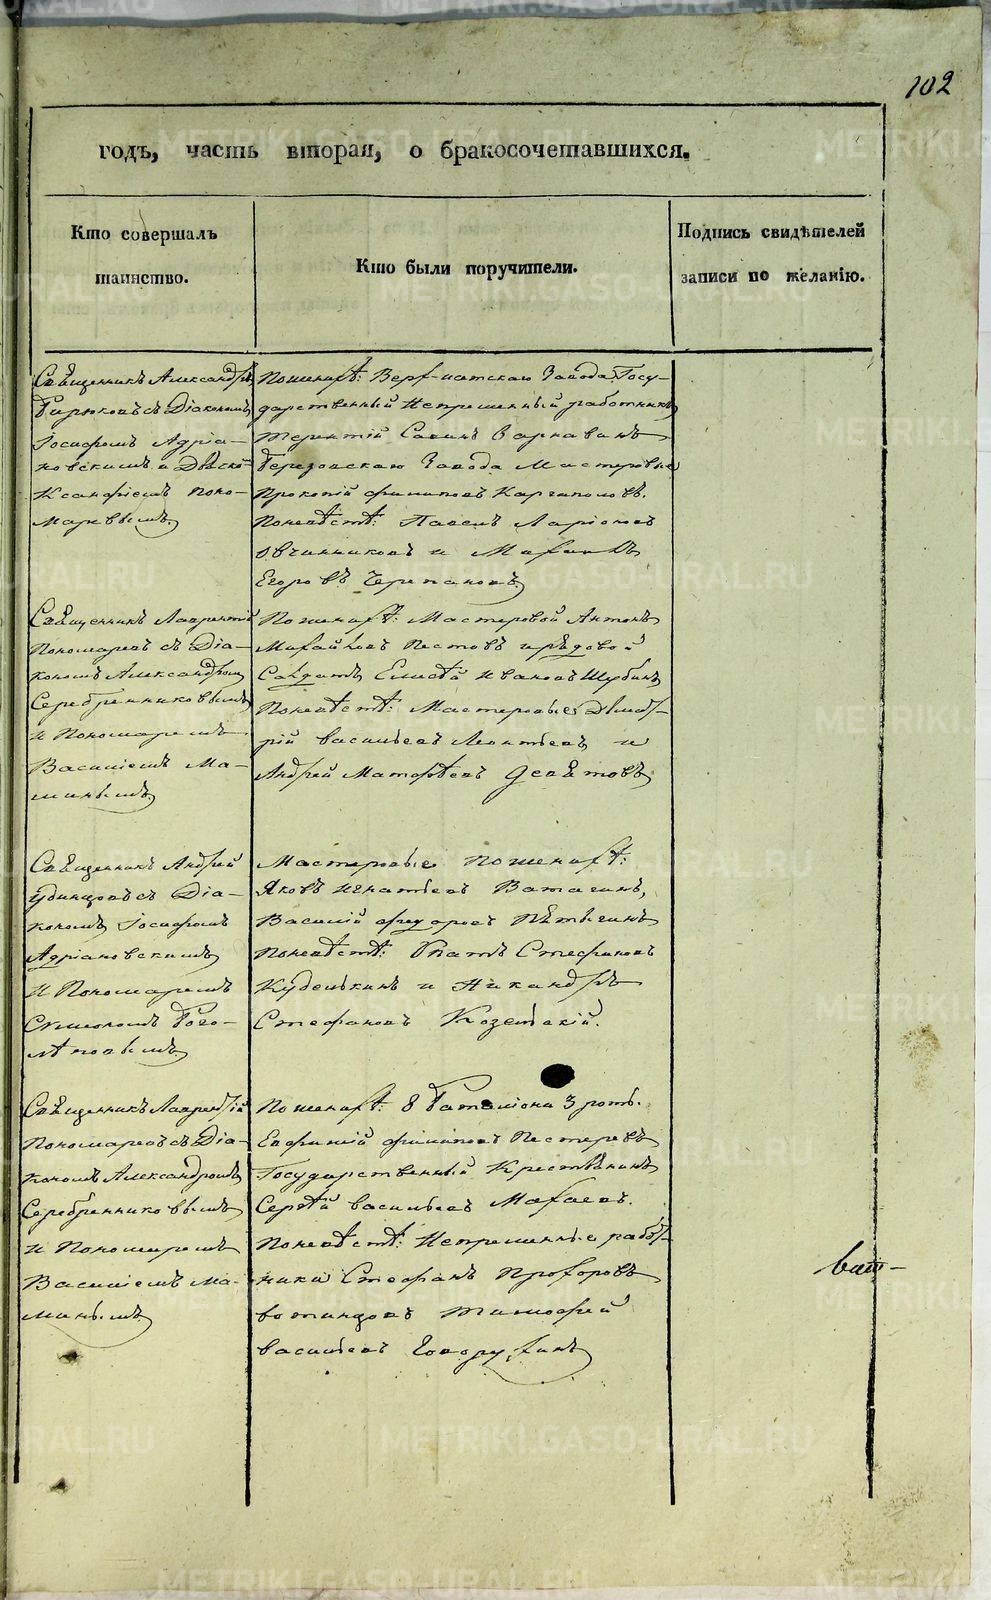 102
годъ, часть вторая, о бракосочетавшихся.
Кто совершалъ
таинство.
Кто были поручители.
Подпись свидѣтелей
записи по желанію.
Священникъ Александръ
Бирюковъ съ Діакономъ
Іосифомъ Адріа-
новскимъ и
Ксанфіемъ Поно-
маревымъ
По женихѣ: Верх-исетскаго Завода Госу-
дарственный Непременный работникъ
Терентій Савинъ Варнавинъ
Березовскаго Завода Мастеровые
Прокопій Филиповъ Каргаполовъ.
По невѣстѣ: Павелъ Ларіоновъ
Овчинниковъ и Михаилъ
Егоровъ Черепановъ
Священникъ Лаврентій
Пономаревъ съ Діа-
кономъ Александромъ
Серебренниковымъ
и Пономаремъ
Василіемъ Ма-
минымъ
По женихѣ: Мастеровой Антонъ
Михайловъ Пестовъ и рядовой
Солдатъ Елисѣй Ивановъ Шубинъ
По невѣстѣ: Мастеровые Дмит-
рій Васильевъ Леонтьевъ и
Андрей Матфѣевъ Девятовъ
Священникъ Андрей
Удинцовъ съ Діа-
кономъ Іосифомъ
Адріановскимъ
и Пономаремъ
Симеономъ Бого-
лѣповымъ
Мастеровые по женихѣ:
Яковъ Игнатьевъ Ватагинъ,
Василій Федоровъ Пѣтыгинъ
По невѣстѣ: Игнатъ Стефановъ
Кубенькинъ и Никандръ
Стефановъ
Священникъ Лаврентій
Пономаревъ съ Діа-
кономъ Александромъ
Серебренниковымъ
и Пономаремъ
Василіемъ Ма-
минымъ
По женихѣ: 8 Баталіона 3 роты.
Евфимій Филиповъ Пестеревъ
Государственный Крестьянинъ
Сергѣй Васильевъ Махаевъ.
По невѣстѣ: Непременные работ-
ники Стефанъ Прохоровъ
Вотинцовъ Тимофей
Васильевъ Говорухинъ